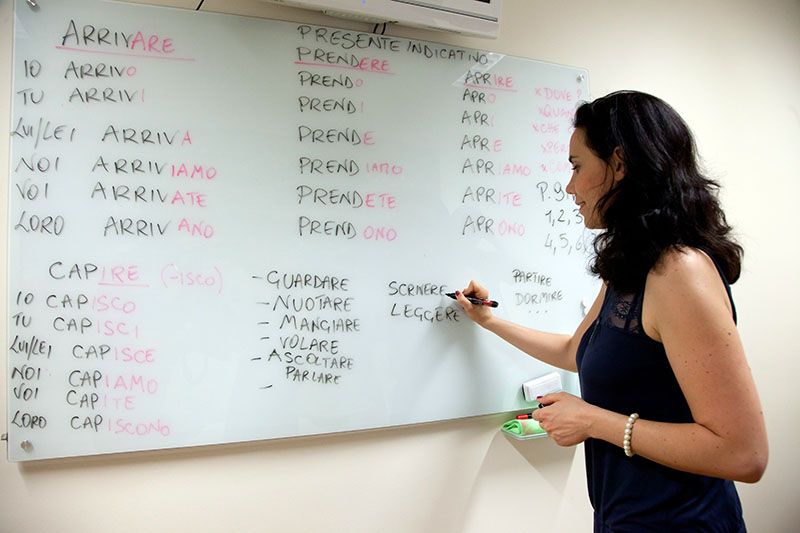 ARRIVARE
IO ARRIVO
TU ARRIVI
LUI/LEI ARRIVA
NOI ARRIVIAMO
VOI ARRIVATE
LORO ARRIVANO
PRESENTE INDICATIVO
PRENDERE
PRENDO
PRENDI
PRENDE
PRENDIAMO
PRENDETE
PRENDONO
APRIRE
APRO
APRI
APRE
APRIAMO
APRITE
APRONO
x DOVE ?
x CHE
1,2,3
4,5,6
CAPIRE (-ISCO)
IO CAPISCO
TU CAPISCI
LUI/LEI CAPISCE
NOI CAPIAMO
VOI CAPITE
LORO CAPISCONO
- GUARDARE
- NUOTARE
- MANGIARE
- VOLARE
- ASCOLTARE
- PARLARE
SCRIVERE
LEGGERE
PARTIRE
DORMIRE
...